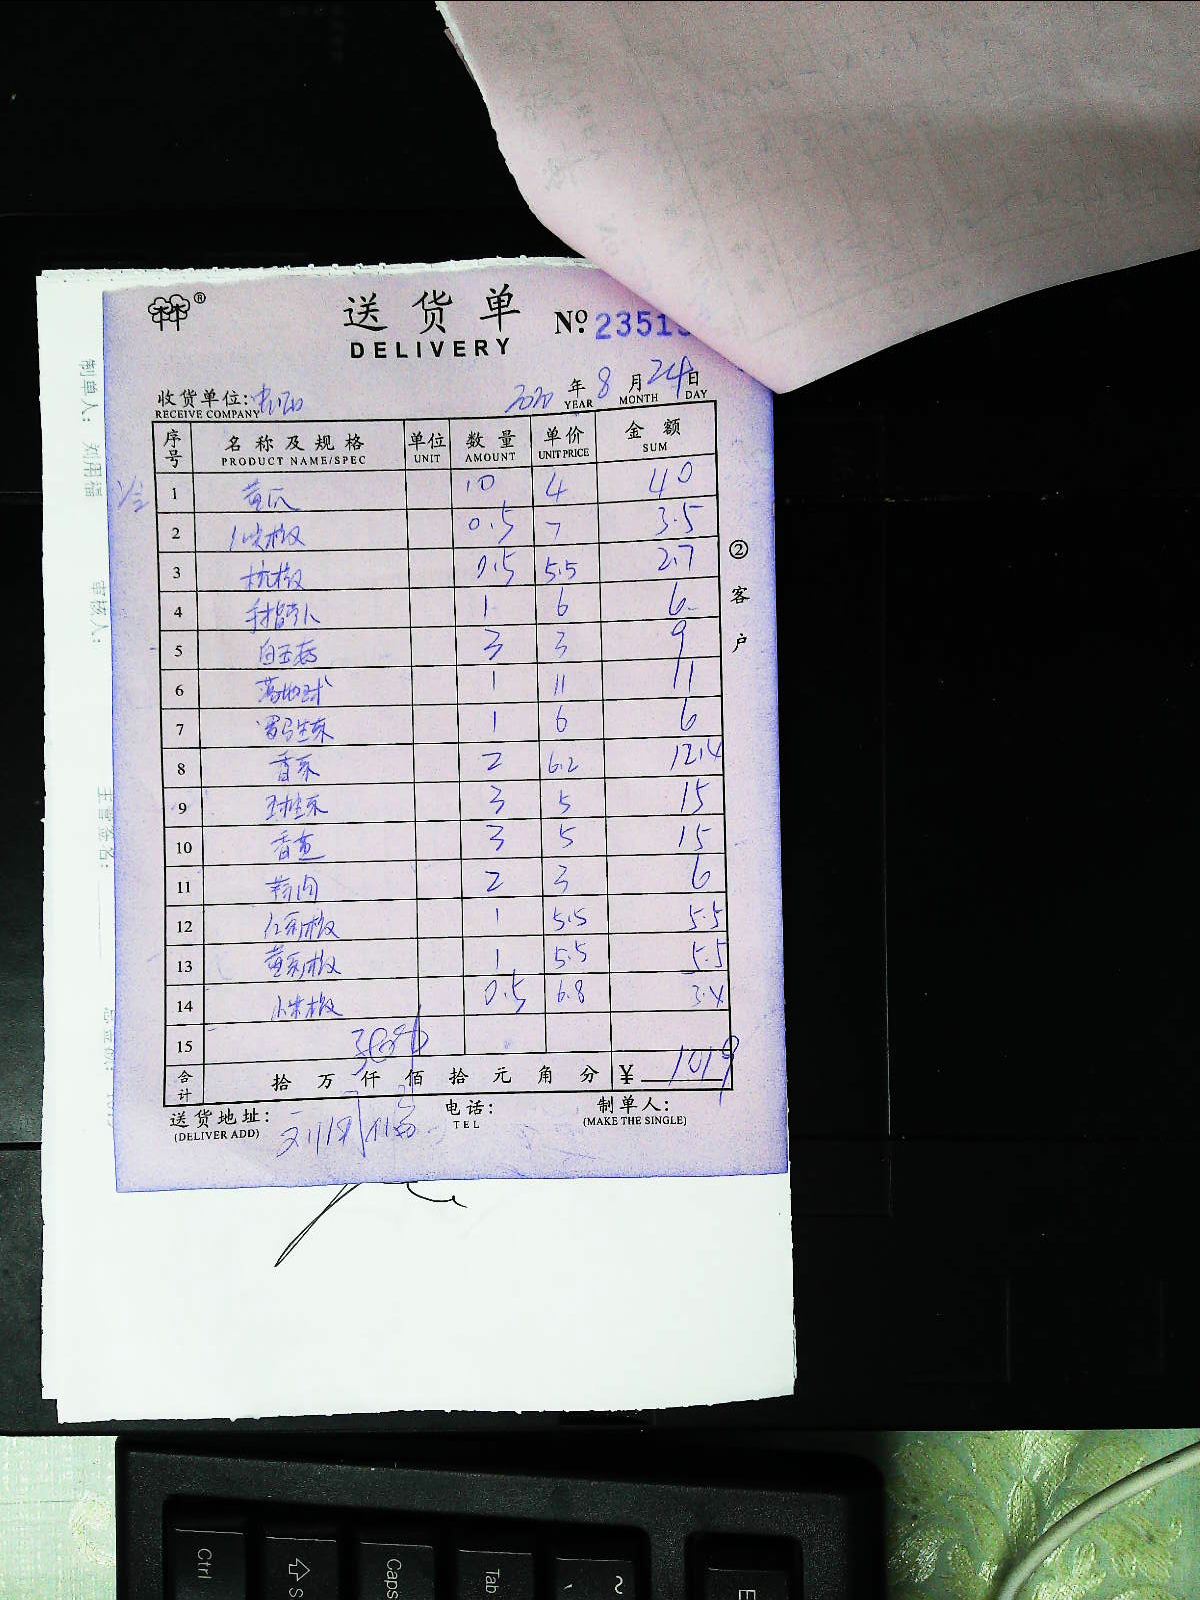 ®
送货单 No 2351
DELIVERY
收货单位: 2020 年 8 月 24 日
RECEIVE COMPANY YEAR MONTH DAY
序号 名称及规格 单位 数量 单价 金额
PRODUCT NAME/SPEC UNIT AMOUNT UNIT PRICE SUM
1 黄瓜 10 4 40
2 尖椒 0.5 7 3.5
3 杭椒 0.5 5.5 2.7
4 手指 1 6 6
5 白玉菇 3 3 9
6 1 11 11
7 罗马生菜 1 6 6
8 香菜 2 6.2 12.4
9 球生菜 3 5 15
10 香 3 5 15
11 2 3 6
12 红彩椒 1 5.5 5.5
13 黄彩椒 1 5.5 5.5
14 小米椒 0.5 6.8 3.4
15
合计 拾 万 仟 佰 拾 元 角 分 ¥ 1019
送货地址: 电话: 制单人:
(DELIVER ADD) TEL (MAKE THE SINGLE)
刘用福
② 客户
制单人: 刘用福
审核人:
主管签名:
Ctrl
Caps
Tab
~